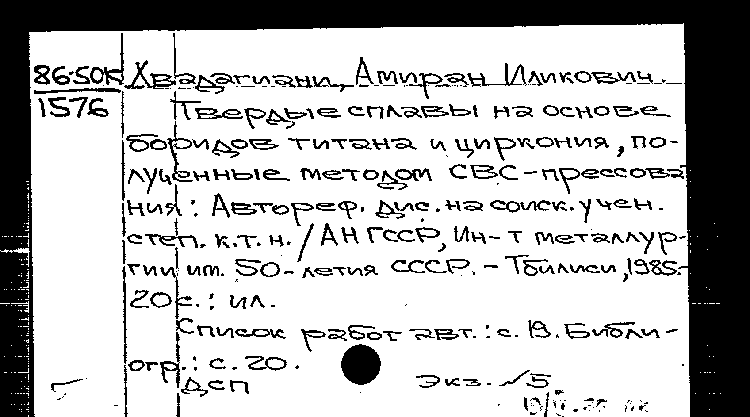 86-50К Хвадагиани, Амиран Иликович.
1576 Твердые сплавы на основе
боридов титана и циркония, по-
лученные методом СВС-прессова
ния: Автореф. дис. на соиск. учен.
степ. к.т.н. / АН ГССР, Ин-т металлур-
гии им. 50-летия СССР. - Тбилиси, 1985.-
20 с.: ил.
Список работ авт.: с. 19. Библи-
огр.: с. 20.
ДСП Экз. №5